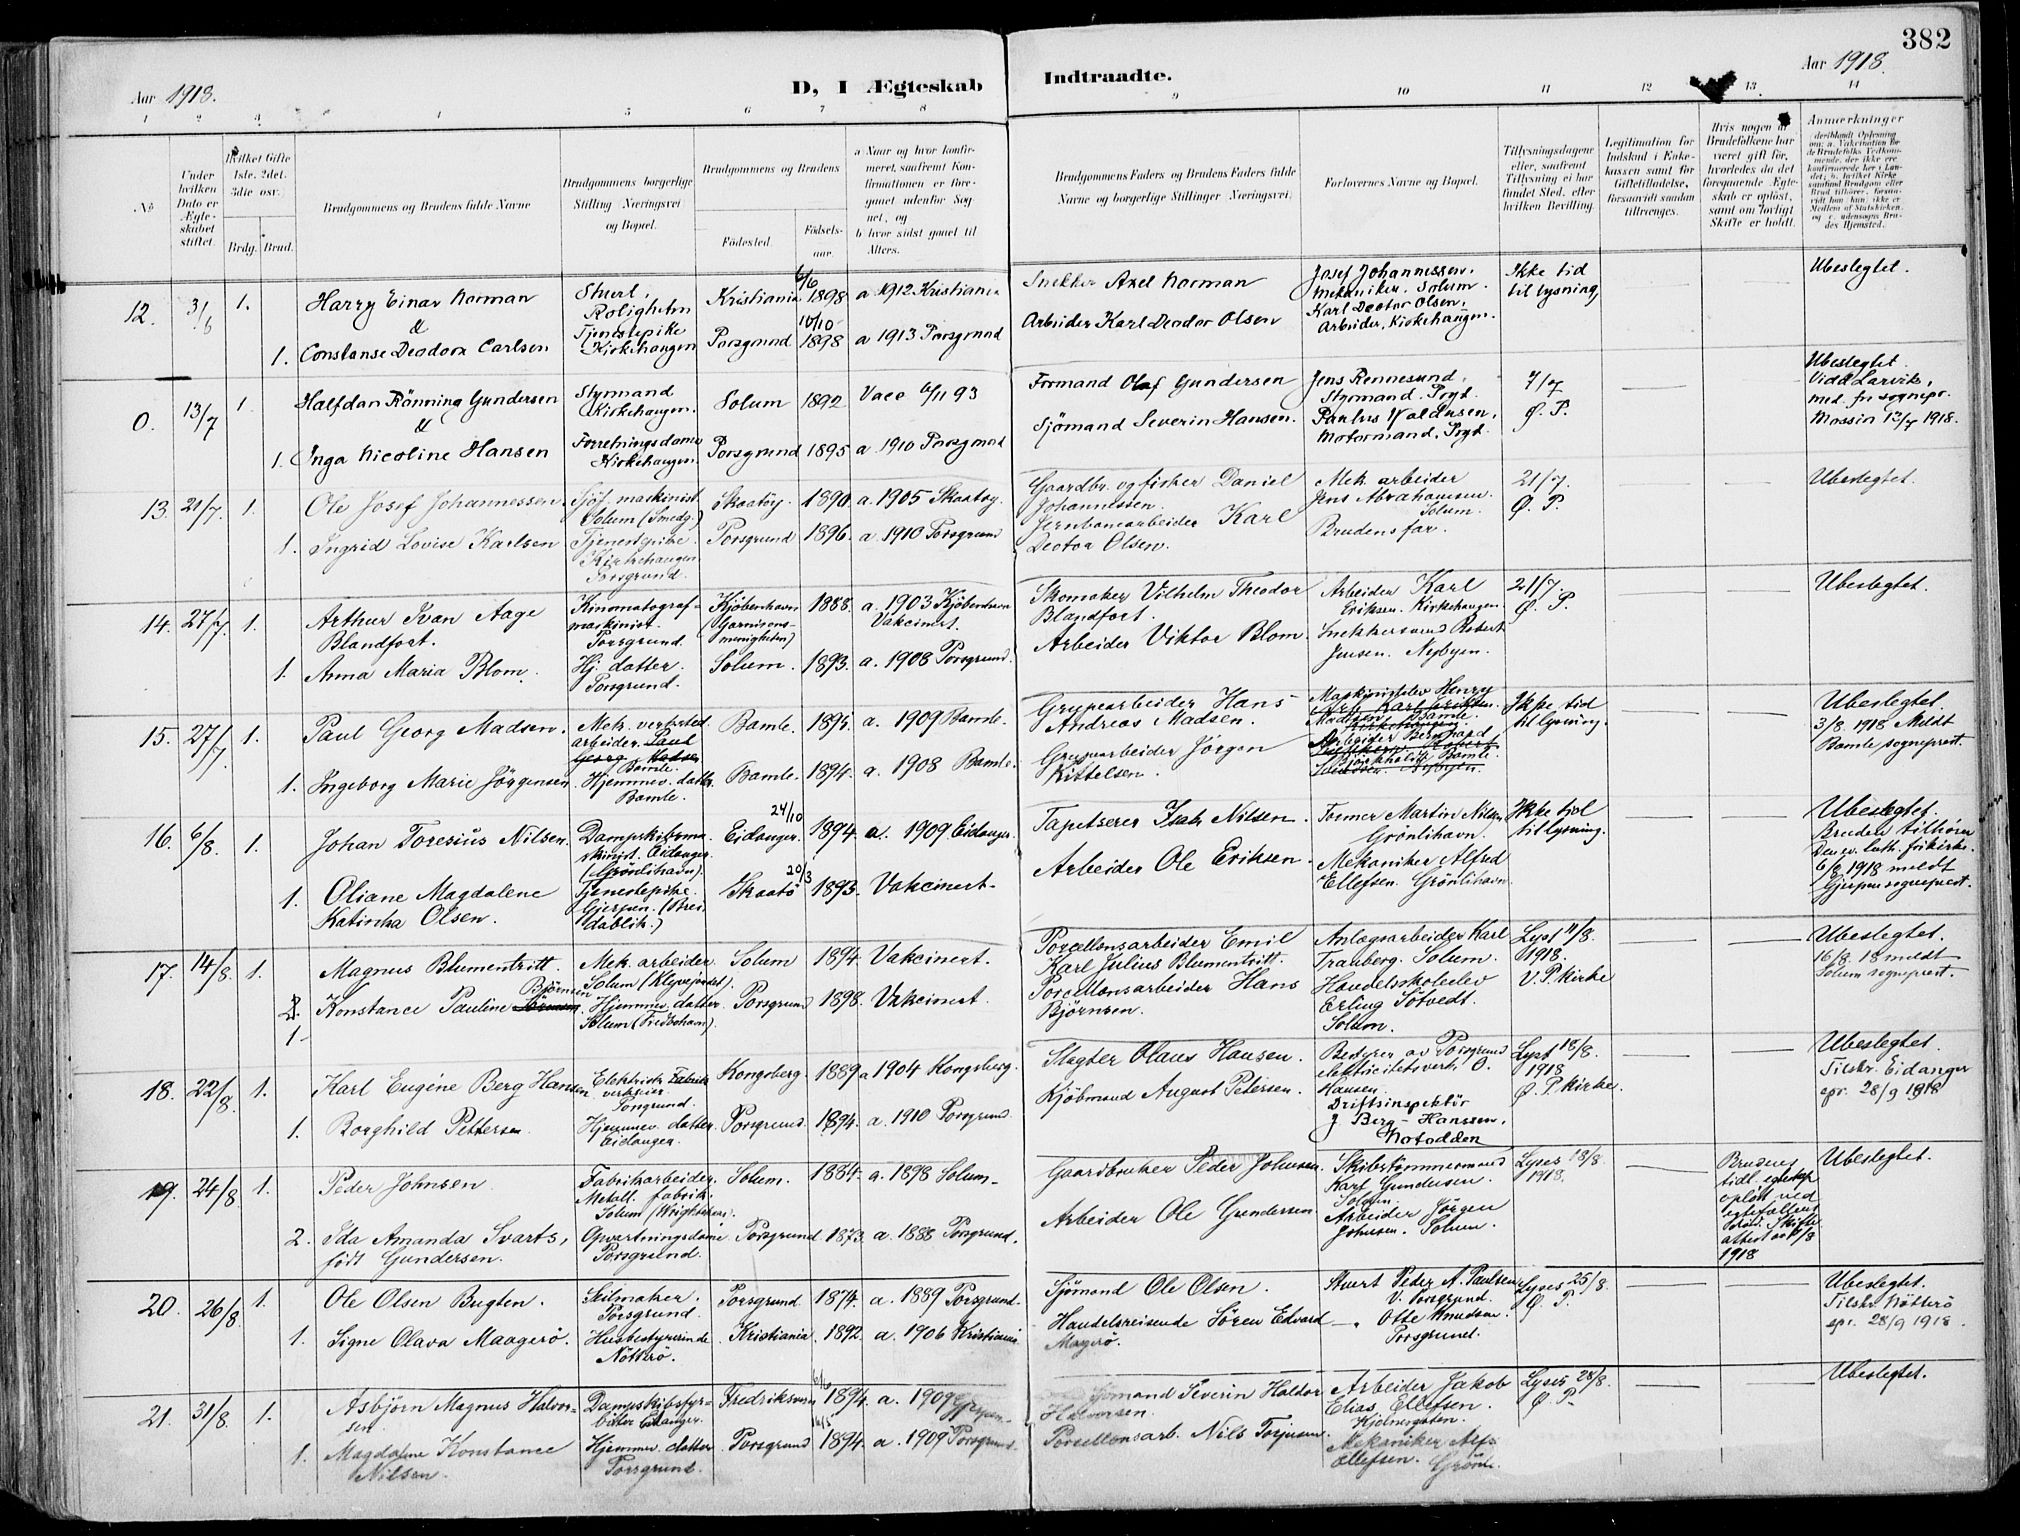 382
Aar 1918.
D, I Ægteskab Indtraadte.
Aar 1918.
1 2 3 4 5 6 7 8 9 10 11 12 13 14
No
Under hvilken Dato er Ægteskabet stiftet.
Hvilket Gifte 1ste, 2det, 3die osv.
Brdg. Brud.
Brudgommens og Brudens fulde Navne
Brudgommens borgerlige Stilling Næringsvei og Bopæl.
Brudgommens og Brudens
Fødested.
Fødselsaar.
a Naar og hvor konfirmeret, saafremt Konfirmationen er foregaaet udenfor Sognet, og
b hvor sidst gaaet til Alters.
Brudgommens Faders og Brudens Faders fulde Navne og borgerlige Stillinger Næringsvei.
Forlovernes Navne og Bopæl.
Tillysningsdagene eller, saafremt Tillysning ei har fundet Sted, efter hvilken Bevilling.
Legitimation for Indskud i Enkekassen samt for Giftetilladelse, forsaavidt saadan tiltrenges.
Hvis nogen af Brudefolkene har været gift før, hvorledes da det foregaaende Ægteskab er opløst, samt om lovligt Skifte er holdt.
Anmærkninger
12. 3/6 1. Harry Einar Norman Stuert, Roligheten Kristiania 6/6 1898 a 1912 Kristiania Snekker Axel Norman Josef Johannessen, Mekaniker. Solum. Ikke tid til lysning, Ubeslegtet.
&
1. Constanse Deodora Carlsen Tjenestepike Kirkehaugen Porsgrund 10/10 1898 a 1913 Porsgrund Arbeider Karl Deodor Olsen Karl Deotor Olsen, Arbeider, Kirkehaugen.
0. 13/7 1. Halfdan Rönning Gundersen Styrmand Kirkehaugen. Solum 1892 Vacc 6/11 93 Formand Olaf Gundersen Jens Rennesund, Styrmand. Prgd. 7/7 Ø. P. Ubeslegtet. Viddd Larvik, med. fr sognepr. Mossin 13/7 1918.
&
1. Inga Nicoline Hansen Forretningsdame Kirkehaugen. Porsgrund 1895 a 1910 Porsgrund Sjömand Severin Hansen. Paulus Valdusen, Motormand, Prgd.
13. 21/7. 1. Ole Josef Johannessen Solum (Smedg.) Skaatöy. 1890 a. 1905 Skaatöy. Gaardbr. og fisker Daniel Johannessen. Mek. arbeider Jens Abrahamsen. Solum. 21/7. Ø. P. Ubeslegtet.
1. Ingrid Lovise Karlsen Tjenestepike. Kirkehaugen Porsgrund. Porsgrund 1896. a 1910 Porsgrund Jernbanearbeider Karl Deotor Olsen. Brudens far.
14. 27/7. 1. Arthur Ivan Aage Blandfort. Kinomatografmaskinist. Porsgrund. Kjöbenhavn (Garnisonsmenigheten) 1888. a. 1903 Kjöbenhavn Vakcinert. Skomaker Vilhelm Theodor Blandfort. Arbeider Karl Eriksen. Kirkehaugen. 21/7. Ø. P. Ubeslegtet.
1. Anna Maria Blom. Hj. datter. Porsgrund. Solum. 1893. a. 1908 Porsgrund. Arbeider Viktor Blom. Snekkersvend Robert Jensen. Nybyen.
15. 27/7 1. Paul Georg Madsen. Mek. verksted arbeider. Bamle. Bamle. 1895. a. 1909 Bamle. Grupearbeider Hans Andreas Madsen. Maskinistelev Henry Madsen, Bamle. Ikke tid til lysning. Ubeslegtet. 3/8. 1918 Meldt Bamle sogneprest.
1. Ingeborg Marie Jörgensen Hjemmev. datter. Bamle. Bamle. 1894. a. 1908 Bamle. Grupearbeider Jörgen Kittelsen. Arbeider Bernhard Bjørkholdt Bamle.
16. 6/8. 1. Johan Toresius Nilsen. Dampskibsmaskinist. Eidanger. (Grönlihavn). Eidanger. 24/10 1894. a. 1909 Eidanger. Tapetserer Isak Nilsen. Former Martin Nilsen Grönlihavn. Ikke tid til lysning. Ubeslegtet. Bruden tilhörer Den ev. luth. frikirke. 6/8 1918 meldt Gjerpen sogneprest.
1. Oliane Magdalene Katinka Olsen. Tjenestepike. Gjerpen. (Breidablik.) Skaatö 20/3 1893. Vakcinert. Arbeider Ole Eriksen. Mekaniker Alfred Ellefsen. Grönlihavn.
17. 14/8. 1. Magnus Blumentritt. Mek. arbeider. Solum (Klevejordet). Solum 1894. Vakcinert. Porcellonsarbeider Emil Karl Julius Blumentritt. Anlægsarbeider Karl Tranberg. Solum. Lyst 11/8. 1918. V. P. kirke Ubeslegtet. 16/8. 18 meldt Solum sogneprest.
1 Konstance Pauline Björnsen Hjemmev. datter. Solum (Fredbohavn). Porsgrund 1898. Vakcinert. Porcellonsarbeider Hans Björnsen. Handelsskoleelev Erling Sötvedt. Solum.
18. 22/8. 1. Karl Eugéne Berg Hansen Porsgrund. Kongsberg. 1889 a 1904 Kongsberg. Slagter Olaus Hansen. Bestyrer av Porsgrund elektricitetsverk, O. Hansen Lyst 18/8. 1918 Ø. P. kirke. Ubeslegtet. Tilskr. Eidanger spr. 28/9 1918
1. Borghild Pettersen Hjemmev. datter. Eidanger. Porsgrund. 1894. a. 1910 Porsgrund Kjöbmand August Petersen. Driftsinspektör J. Berg-Hanssen, Notodden
19. 24/8 1. Peder Johnsen Fabrikarbeider. Metall. fabrik. Solum. 1884. a. 1898 Solum. Gaardbruker Peder Johnsen. Skibstömmermand Karl Gundersen. Solum. Lyses 18/8. 1918. Brudens tidl. egteskap oplöst ved 1918 Ubeslegtet.
2. Ida Amanda Svarts, födt Gundersen. Opvartningsdame Porsgrund. Porsgrund 1873. a. 1888 Porsgrund. Arbeider Ole Gundersen. Arbeider Jörgen Johnsen. Solum.
20. 26/8. 1. Ole Olsen Bugten. Seilmaker. Porsgrund. Porsgrund 1874. a. 1889 Porsgrund. Sjömand Ole Olsen. Stuert Peder A. Paulsen V. Porsgrund. Lyses 25/8. Ø. P. Ubeslegtet. Tilskr. Nötterö spr. 28/9 1918.
1. Signe Olava Maagerö. Husbestyrerinde Nötterö. Kristiania. 1892. a. 1906 Kristiania Handelsreisende Sören Edvard Magerö. Otte Knudsen. Porsgrund.
21. 31/8. 1. Asbjörn Magnus Halvorsen. Dampskibsfyrböter Eidanger. Fredriksværn 6/6 1894. a. 1909 Gjerpen. Sjömand Severin Haldor Halvorsen. Arbeider Jakob Elias Ellefsen. Lyses 28/8. Ø. P. Ubeslegtet.
1. Magdalene Konstance Nilsen. Hjemmev. datter Porsgrund. Porsgrund 1894. a. 1909 Porsgrund. Porcellonsarb. Nils Torjusen. Mekaniker Alf. Ellefsen.